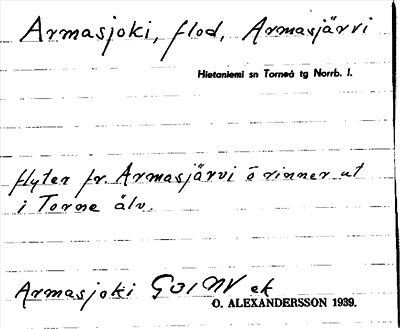 Armasjoki, flod, Armasjärvi
Hietaniemi sn Torneå tg Norrb. l.
flyter fr. Armasjärvi o rinner ut
i Torne älv.
Armasjoki G31 NV ek
O. ALEXANDERSSON 1939.